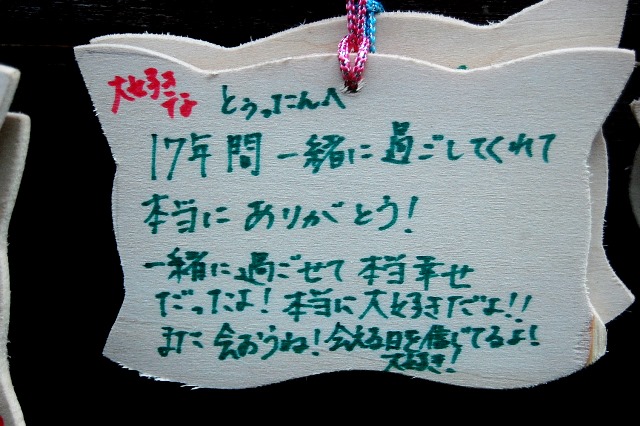 大好きな とぅったんへ
17年間一緒に過ごしてくれて
本当にありがとう!
一緒に過ごせて本当幸せ
だったよ!本当に大好きだよ!!
また会おうね!会える日を信じてるよ!
大好き!